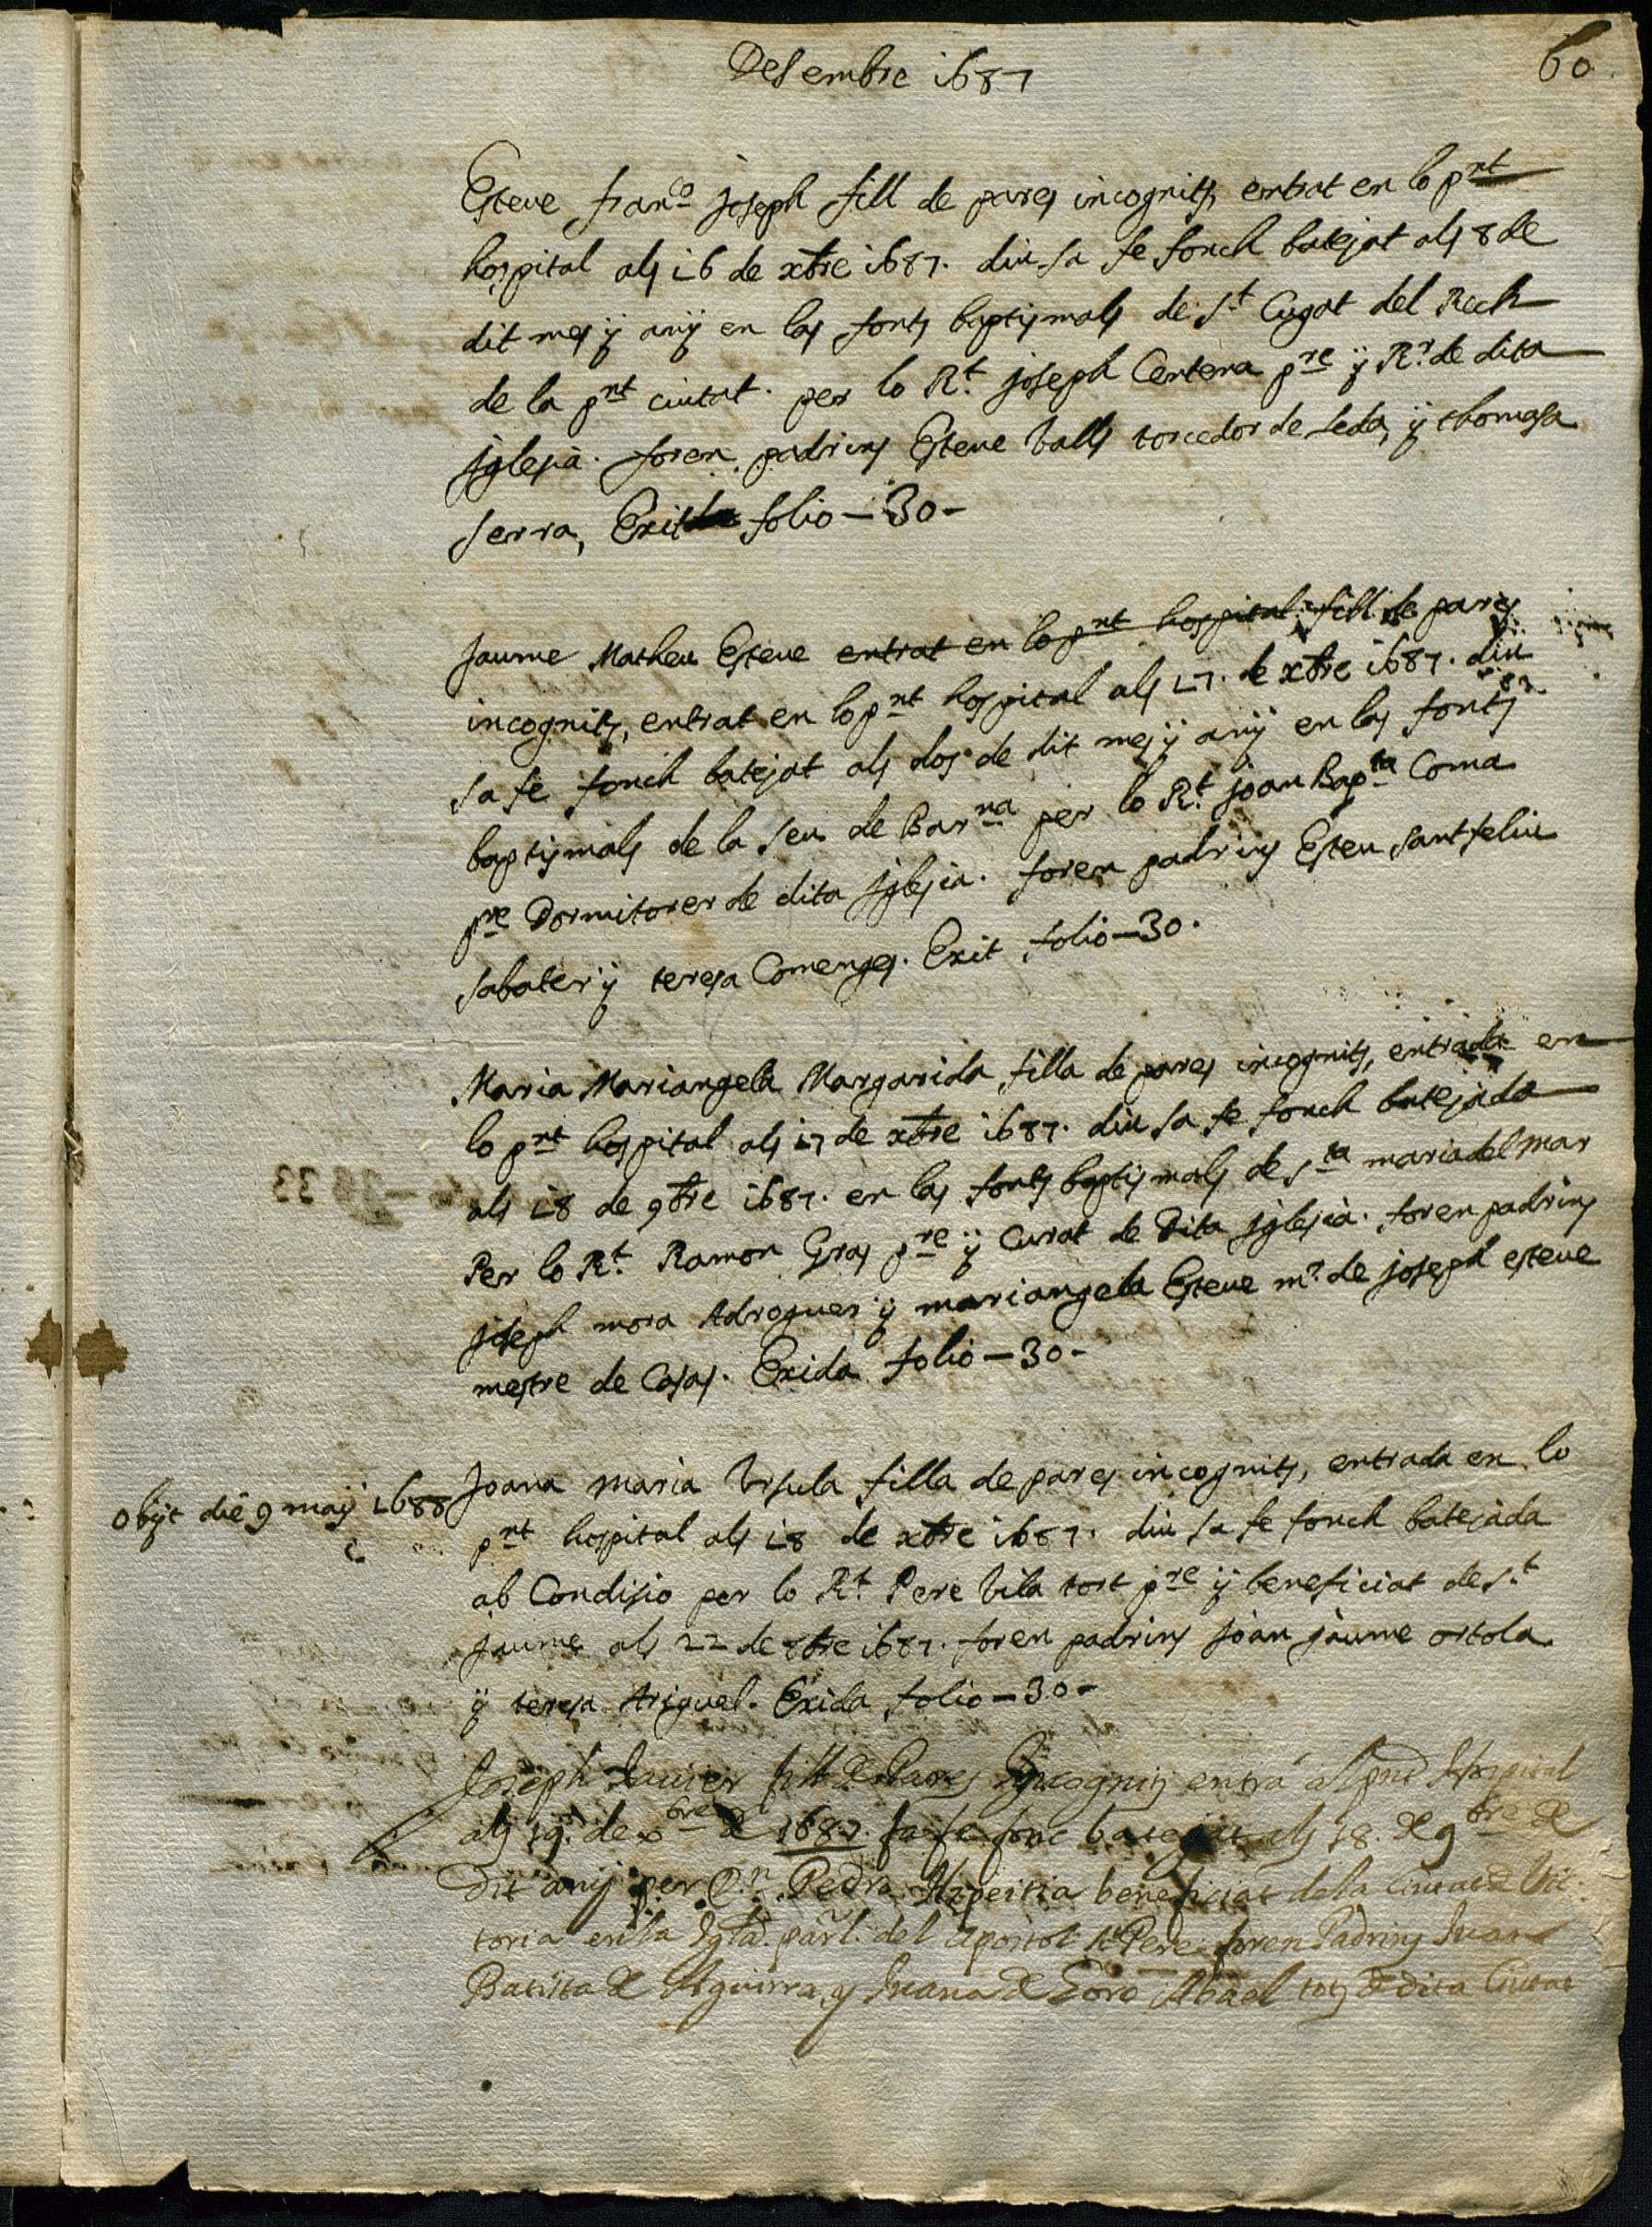 Desembre 1687
60
Esteve franco joseph fill de pares incognits, entrat en lo pnt
hospital als 16 de xbre 1687. diu sa fe fonch batejat als 8 de
dit mes ÿ anÿ en las fonts baptismals de St Cugat del Rech
de la pnt ciutat. per lo Rt. joseph Centena pre ÿ Rr. de dita
jglesia. foren padrins Esteve Valls torcedor de seda, ÿ thomasa
serra, Exit folio - 30 -
Jaume Matheu Esteve entrat en lo pnt hospital fill de pares
incognits, entrat en lo pnt hospital als 17. de xbre 1687. diu
sa fe fonch batejat als dos de dit mes ÿ anÿ en las fonts
baptismals de la seu de Barna per lo Rt. joan Bapta Coma
pre Dormitorer de dita jglesia. foren padrins Esteu santfeliu
sabater ÿ teresa Comenges. Exit folio - 30.
Maria Mariangela Margarida filla de pares incognits, entrada en
lo pnt hospital als 17 de xbre 1687. diu sa fe fonch batejada
als 18 de 9bre 1687. en las fonts baptismals de Sta maria del Mar
Per lo Rt. Ramon Gras pre ÿ Curat de Dita jglesia. foren padrins
joseph mora Adroguer ÿ mariangela Esteve mr. de joseph esteve
mestre de Casas. Exida folio - 30 -
Obÿt die 9 maÿ 1688
Joana Maria Ursula filla de pares incognits, entrada en lo
pnt hospital als 18 de xbre 1687. diu sa fe fonch batejada
ab Condisio per lo Rt. Pere Vila tort pre ÿ beneficiat de St.
jaume als 22 de xbre 1687. foren padrins joan jaume ortola
ÿ teresa Ariguel. Exida folio - 30 -
Joseph Xavier fill de Pares Yncognits entrá al pnt Hospital
als 19. de xbre de 1687. sa fe fonc als 18. de 9bre de
Dit anÿ per Dn. Pedro Azpeitia beneficiat de la Ciutat de Vic-
toria en la Ygla. parl. del Apostol St Pere foren Padrins Juan
Batista de Aguirra, y Juana de Abael tots de dita Ciutat